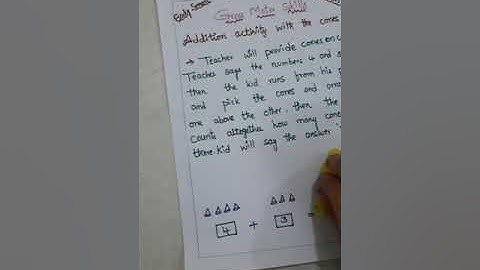 Early
Gross Motor Skills
Addition activity with the cones
→ Teacher will provide cones on
Teacher says the numbers 4 and
then the kid runs from his
and pick the cones and
one above the other, then the
counts altogether how many
there. kid will say the answer.
4 + 3 =